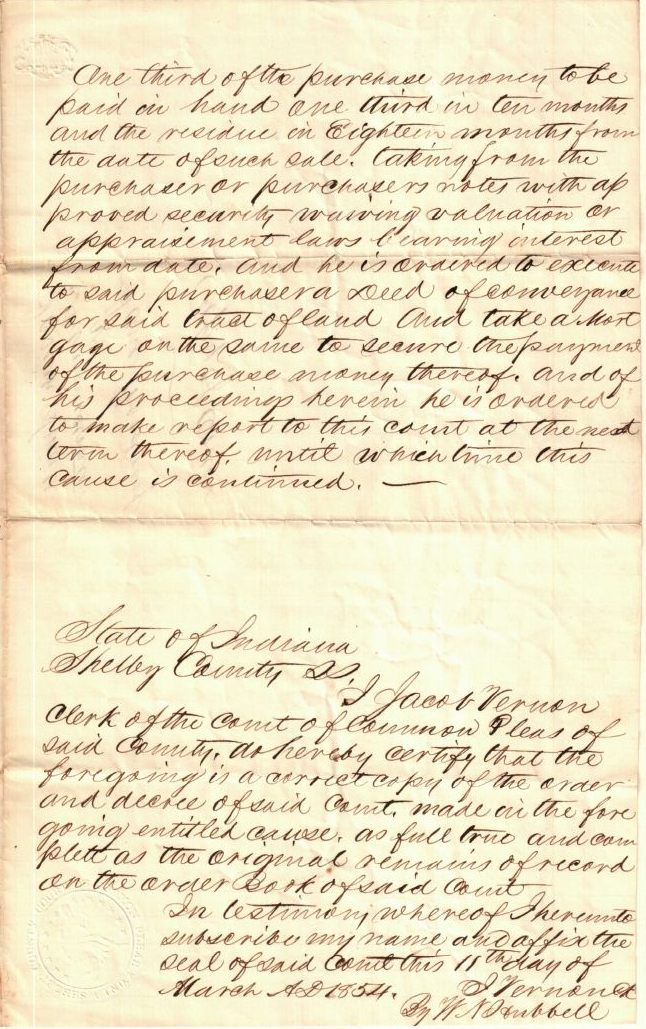 One third of the purchase money to be
paid in hand one third in ten months
and the residue in Eighteen months from
the date of such sale. taking from the
purchaser or purchasers notes with ap
proved security waiving valuation or
appraisement laws bearing interest
from date. And he is ordered to execute
to said purchaser a Deed of conveyance
for said tract of land And take a Mort
gage on the same to secure the payment
of the purchase money thereof. And of
his proceedings herein he is ordered
to make report to this court at the next
term thereof. until which time this
cause is continued. —
State of Indiana
Shelby County SS.
I Jacob Vernon
Clerk of the court of Common Pleas of
said County. do hereby certify that the
foregoing is a correct copy of the order
and decree of said Court. made in the fore
going entitled cause. as full true and com
plett as the original remains of record
on the order Book of said Court
In testimony whereof I hereunto
subscribe my name and affix the
seal of said Court this 11th day of
March AD 1854.
J Vernon Clk
By W. N. Hubbell